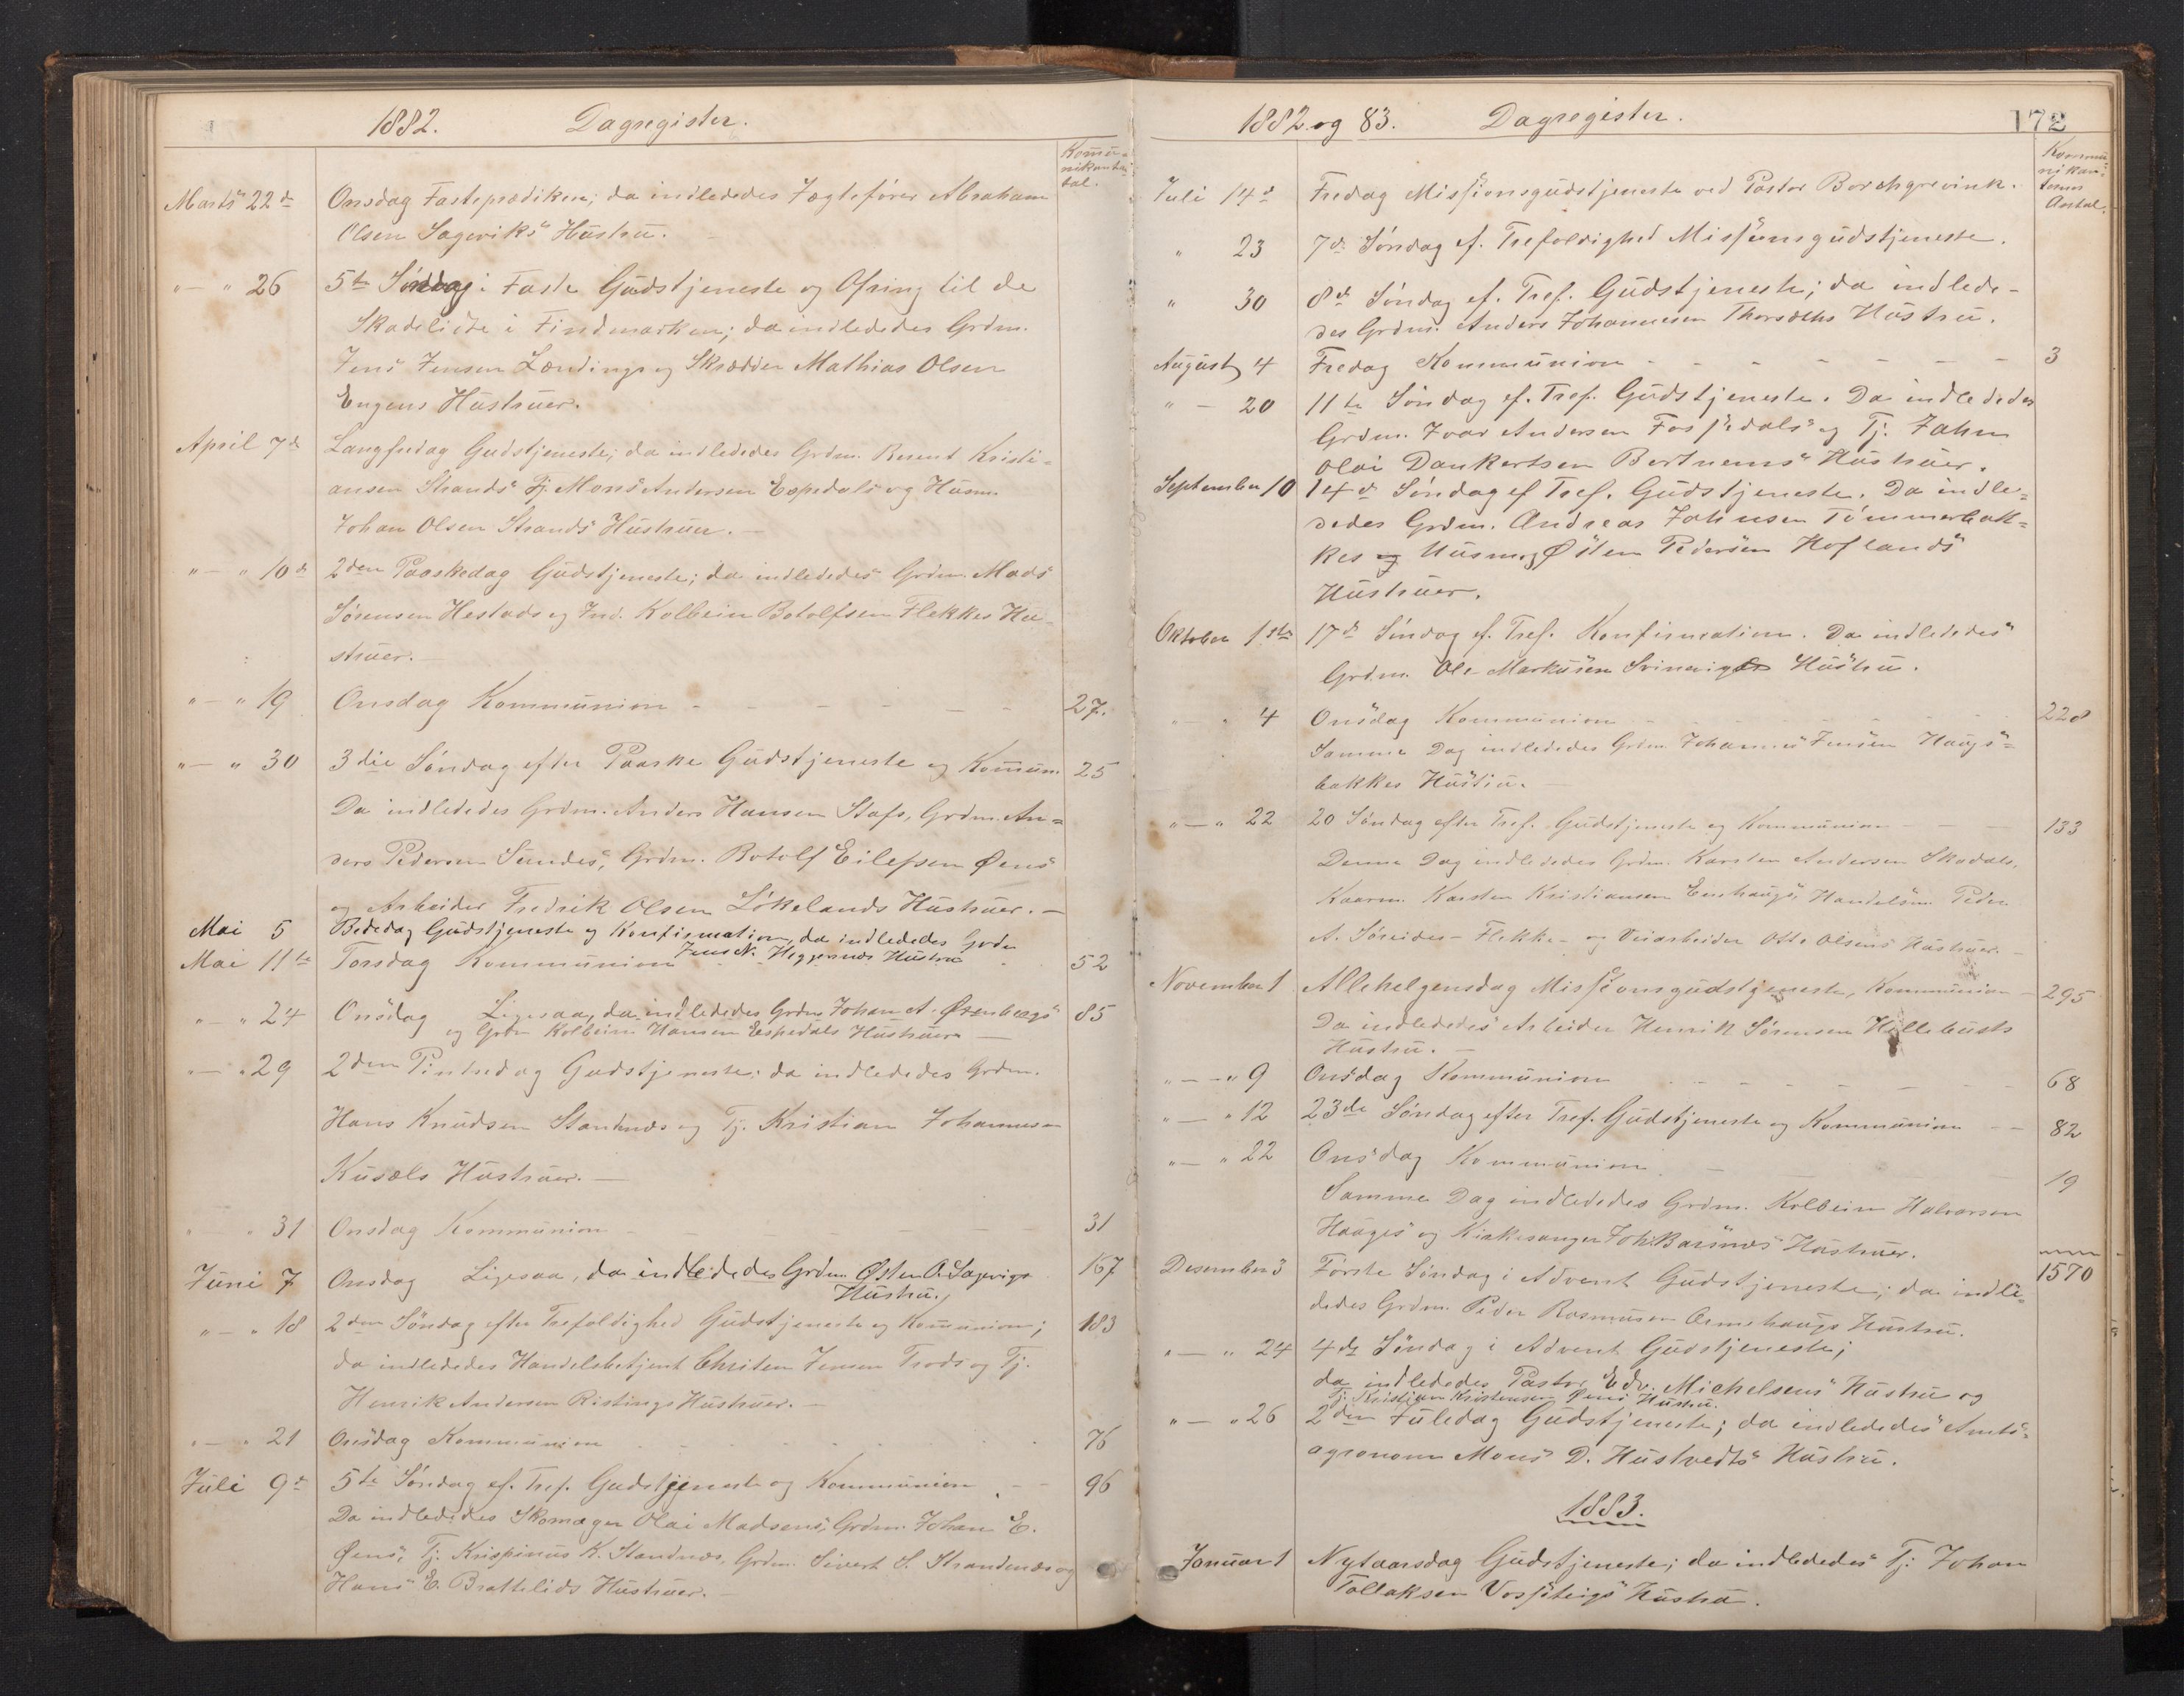 1882. Dagregister.
Kommu-
nikanter
tal.
Marts 22de Onsdag Fasteprædiken; da indlededes Fægtefører Abraham
Olsen Sageviks Hustru.
" — " 26 5te Søndag i Faste Gudstjeneste og Ofring til de
Skadelidte i Findmarken; da indlededes Grdm.
Jens Jensen Lændings og Skrædder Mathias Olsen
Engens Hustruer.
April 7de Langfredag Gudstjeneste; da indlededes Grdm. Kristi-
ansen Strands Tj. Mons Andersen Espedals og Husm.
Johan Olsen Strands Hustruer. —
" — " 10de 2den Paaskedag Gudstjeneste; da indlededes Grdm. Mads
Sørensen Hestads og Ind. Kolbein Botolfsen Flekkes Hu-
struer. —
" — " 19 Onsdag Kommunion - - - - - 27.
" — " 30 3die Søndag efter Paaske Gudstjeneste og Kommun. 25
Da indlededes Grdm. Anders Hansen Stafs, Grdm. An=
ders Pedersen Sundes, Grdm. Botolf Eilefsen Øens
og Arbeider Fredrik Olsen Løkelands Hustruer. —
Mai 5 Bededag Gudstjeneste og Konfirmation, da indlededes Grdm
Jens N. Heggernes Hustru
Mai 11te Torsdag Kommunion 52
" — " 24 Onsdag Ligesaa, da indlededes Grdm Johan A. Ørenbergs 85
og Grdm Kolbein Hansen Espedals Hustruer —
" — " 29 2den Pintsedag Gudstjeneste; da indlededes Grdm.
Hans Knudsen Standnæs og Tj. Kristian Johannesen
Kusæls Hustruer. —
" " 31 Onsdag Kommunion - - - - 31
Juni 7 Onsdag Ligesaa, da indlededes Grdm Østen A. Sagevigs 167
Hustru.
" — " 18 2den Søndag efter Trefoldighed Gudstjeneste og Kommunion; 183
da indlededes Handelsbetjent Christen Jensen Trods og Tj.
Henrik Andersen Ristings Hustruer. —
" — " 21 Onsdag Kommunion 76
Juli 9de 5te Søndag ef. Tref. Gudstjeneste og Kommunion - - 96
Da indlededes Skomager Olai Madsens, Grdm. Johan E.
Øens, Tj. Krispinus K. Standnæs, Grdm. Sivert S. Strandenæs og
Hans E. Brattelids Hustruer. —
1882 og 83. Dagregister. 172
Kommu-
nikan-
ternes
Antal.
Juli 14de Fredag Missionsgudstjeneste ved Pastor Borchgrevink.
" 23 7de Søndag ef. Trefoldighed Missionsgudstjeneste.
" 30 8de Søndag ef. Tref. Gudstjeneste; da indlede-
des Grdm. Anders Johannesen Thorsæths Hustru.
August 4 Fredag Kommunion - - - - - - 3
" — 20 11te Søndag ef. Tref. Gudstjeneste. Da indlededes
Grdm. Ivar Andersen Fossedals og Tj. Johan
Olai Dankertsen Bertnems Hustruer.
September 10 14de Søndag ef Tref. Gudstjeneste. Da indle=
dedes Grdm. Andreas Johnsen Tømmerbak=
kes og Husm. Østen Pedersen Hoflands
Hustruer.
Oktober 1ste 17de Søndag ef. Tref. Konfirmation. Da indlededes
Grdm. Ole Markusen Svinevigs Hustru.
" — " 4 Onsdag Kommunion 228
Samme Dag indlededes Grdm. Johannes Jensen Haugs=
bakkes Hustru. —
" — " 22 20 Søndag efter Tref. Gudstjeneste og Kommunion — — 133
Denne Dag indlededes Grdm. Karsten Andersen Skadals,
Kaarm. Karsten Kristiansen Eenhaugs, Handelsm. Peder
A. Søreides - Flekke - og Veiarbeider Otto Olsens Hustruer. —
November 1 Allehelgensdag Missionsgudstjeneste, Kommunion — 295
Da indlededes Arbeider Henrik Sørensen Hellebusts
Hustru. —
" — " 9 Onsdag Kommunion - - - - - 68
" — " 12 23de Søndag efter Tref. Gudstjeneste og Kommunion - - 82
" — " 22 Onsdag Kommunion — — 19
Samme Dag indlededes Grdm. Kolbein Halvorsen
Hauges og Kirkesanger Joh. Barsnæs Hustruer.
1570
Desember 3 Første Søndag i Advent Gudstjeneste; da indle-
dedes Grdm. Peder Rasmusen Ormehaugs Hustru.
" — " 24 4de Søndag i Advent Gudstjeneste;
da indlededes Pastor Edv. Michelsens Hustru og
Tj. Kristian Kristensen Øens Hustru.
" — " 26 2den Juledag Gudstjeneste; da indlededes Amts=
agronom Mons D. Hustvedts Hustru.
1883.
Januar 1 Nytaarsdag Gudstjeneste; da indlededes Tj. Johan
Tollaksen Vossteigs Hustru.